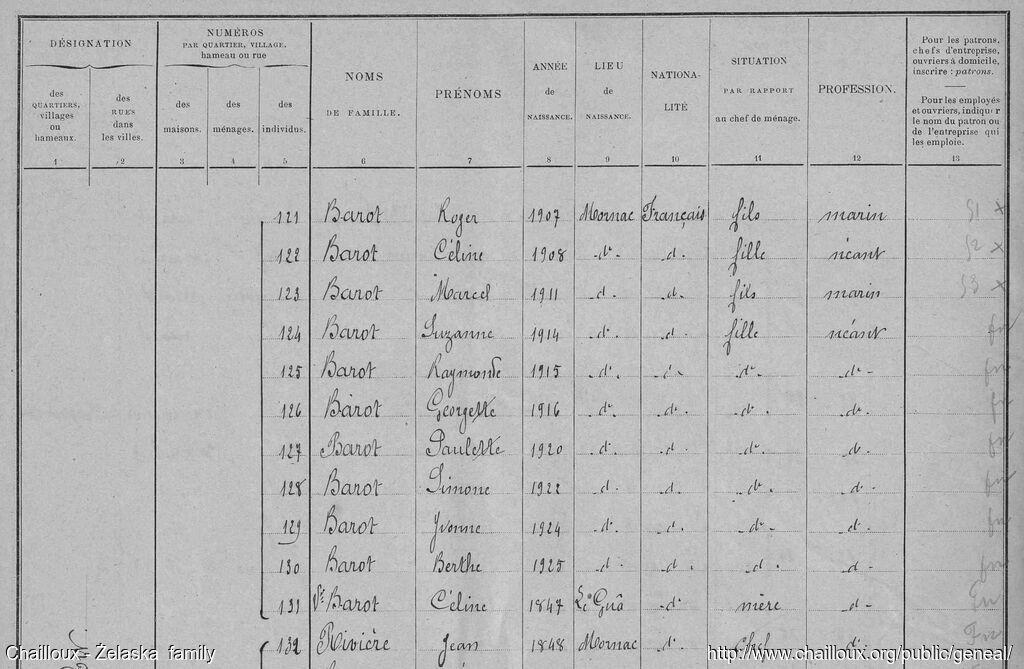 DÉSIGNATION
NUMÉROS
PAR QUARTIER, VILLAGE,
hameau ou rue
des
QUARTIERS,
villages
ou
hameaux.
des
RUES
dans
les villes.
des
maisons.
des
ménages.
des
individus.
NOMS
DE FAMILLE.
PRÉNOMS
ANNÉE
de
NAISSANCE.
LIEU
de
NAISSANCE.
NATIONA-
LITÉ
SITUATION
PAR RAPPORT
au chef de ménage.
PROFESSION.
Pour les patrons,
chefs d'entreprise,
ouvriers à domicile,
inscrire : patrons.
Pour les employés
et ouvriers, indiquer
le nom du patron ou
de l'entreprise qui
les emploie.
1 2 3 4 5 6 7 8 9 10 11 12 13
121 Barot Roger 1907 Mornac Français fils marin 51 x
122 Barot Céline 1908 d° d° fille néant 52 x
123 Barot Marcel 1911 d° d° fils marin 53 x
124 Barot Suzanne 1914 d° d° fille néant
125 Barot Raymonde 1915 d° d° d° d°
126 Barot Georgette 1916 d° d° d° d°
127 Barot Paulette 1920 d° d° d° d°
128 Barot Simone 1922 d° d° d° d°
129 Barot Yvonne 1924 d° d° d° d°
130 Barot Berthe 1925 d° d° d° d°
131 Vve Barot Céline 1847 Le Guâ d° mère d°
132 Rivière Jean 1848 Mornac d° chef d°
Chailloux - Żelaska family
http://www.chailloux.org/public/geneal/